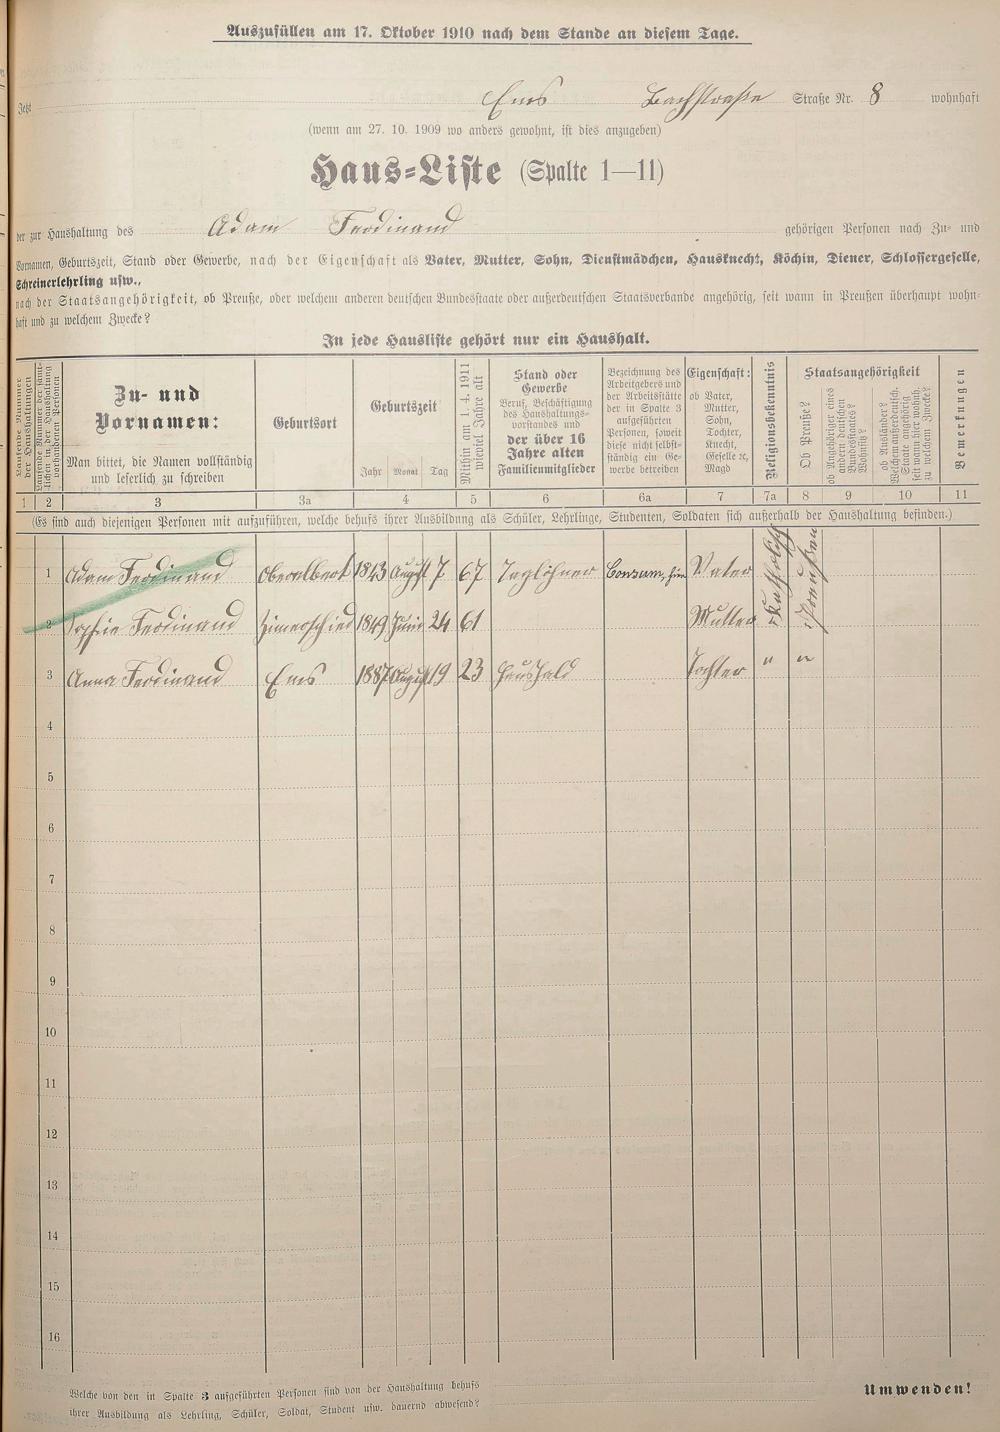 Auszufüllen am 17. Oktober 1910 nach dem Stande an diesem Tage.
Jetzt Ems Bachstraße Straße Nr. 8 wohnhaft
(wenn am 27. 10. 1909 wo anders gewohnt, ist dies anzugeben)
Haus-Liste (Spalte 1—11)
der zur Haushaltung des Adam Ferdinand gehörigen Personen nach Zu- und
Vornamen, Geburtszeit, Stand oder Gewerbe, nach der Eigenschaft als Vater, Mutter, Sohn, Dienstmädchen, Hausknecht, Köchin, Diener, Schlossergeselle,
Schreinerlehrling usw.,
nach der Staatsangehörigkeit, ob Preuße, oder welchem anderen deutschen Bundesstaate oder außerdeutschen Staatsverbande angehörig, seit wann in Preußen überhaupt wohn-
haft und zu welchem Zwecke?
In jede Hausliste gehört nur ein Haushalt.
Laufende Nummer
der Haushaltungen
Laufende Nummer der sämt-
lichen in der Haushaltung
vorhandenen Personen
Zu- und
Vornamen:
Man bittet, die Namen vollständig
und leserlich zu schreiben
Geburtsort
Geburtszeit
Jahr Monat Tag
Mithin am 1. 4. 1911
wieviel Jahre alt
Stand oder
Gewerbe
Beruf, Beschäftigung
des Haushaltungs-
vorstandes und
der über 16
Jahre alten
Familienmitglieder
Bezeichnung des
Arbeitgebers und
der Arbeitsstätte
der in Spalte 3
aufgeführten
Personen, soweit
diese nicht selbst-
ständig ein Ge-
werbe betreiben
Eigenschaft:
ob Vater,
Mutter,
Sohn,
Tochter,
Knecht,
Geselle ec,
Magd
Religionsbekenntnis
Staatsangehörigkeit
Ob Preuße?
ob Angehöriger eines
andern deutschen
Bundesstaates?
Wohnsitz?
ob Ausländer?
Welchem außerdeutsch.
Staate angehörig
seit wann hier wohnh.
zu welchem Zwecke?
Bemerkungen
1 2 3 3a 4 5 6 6a 7 7a 8 9 10 11
(Es sind auch diejenigen Personen mit aufzuführen, welche behufs ihrer Ausbildung als Schüler, Lehrlinge, Studenten, Soldaten sich außerhalb der Haushaltung befinden.)
1 Adam Ferdinand Oberelbert 1843 August 7 67 Taglöhner Consum, Vater Katholisch Preußen
2 Sophie Ferdinand Zimerschied 1849 Juni 24 61 Mutter
3 Anna Ferdinand Ems 1887 August 19 23 Haushald Tochter " "
4
5
6
7
8
9
10
11
12
13
14
15
16
Welche von den in Spalte 3 aufgeführten Personen sind von der Haushaltung behufs
ihrer Ausbildung als Lehrling, Schüler, Soldat, Student usw. dauernd abwesend?
Umwenden!